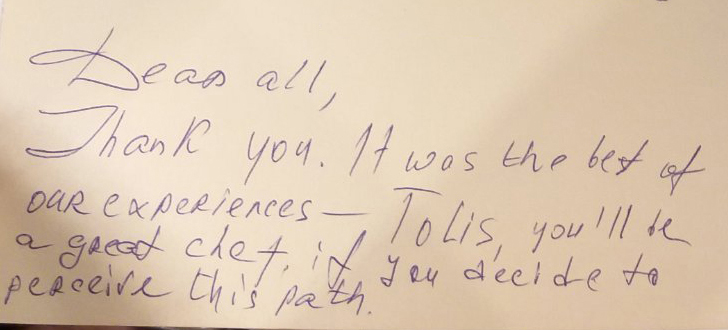 Dear all,
Thank you. It was the best of
our experiences — Tolis, you'll be
a great chef, if you decide to
perceive this path.